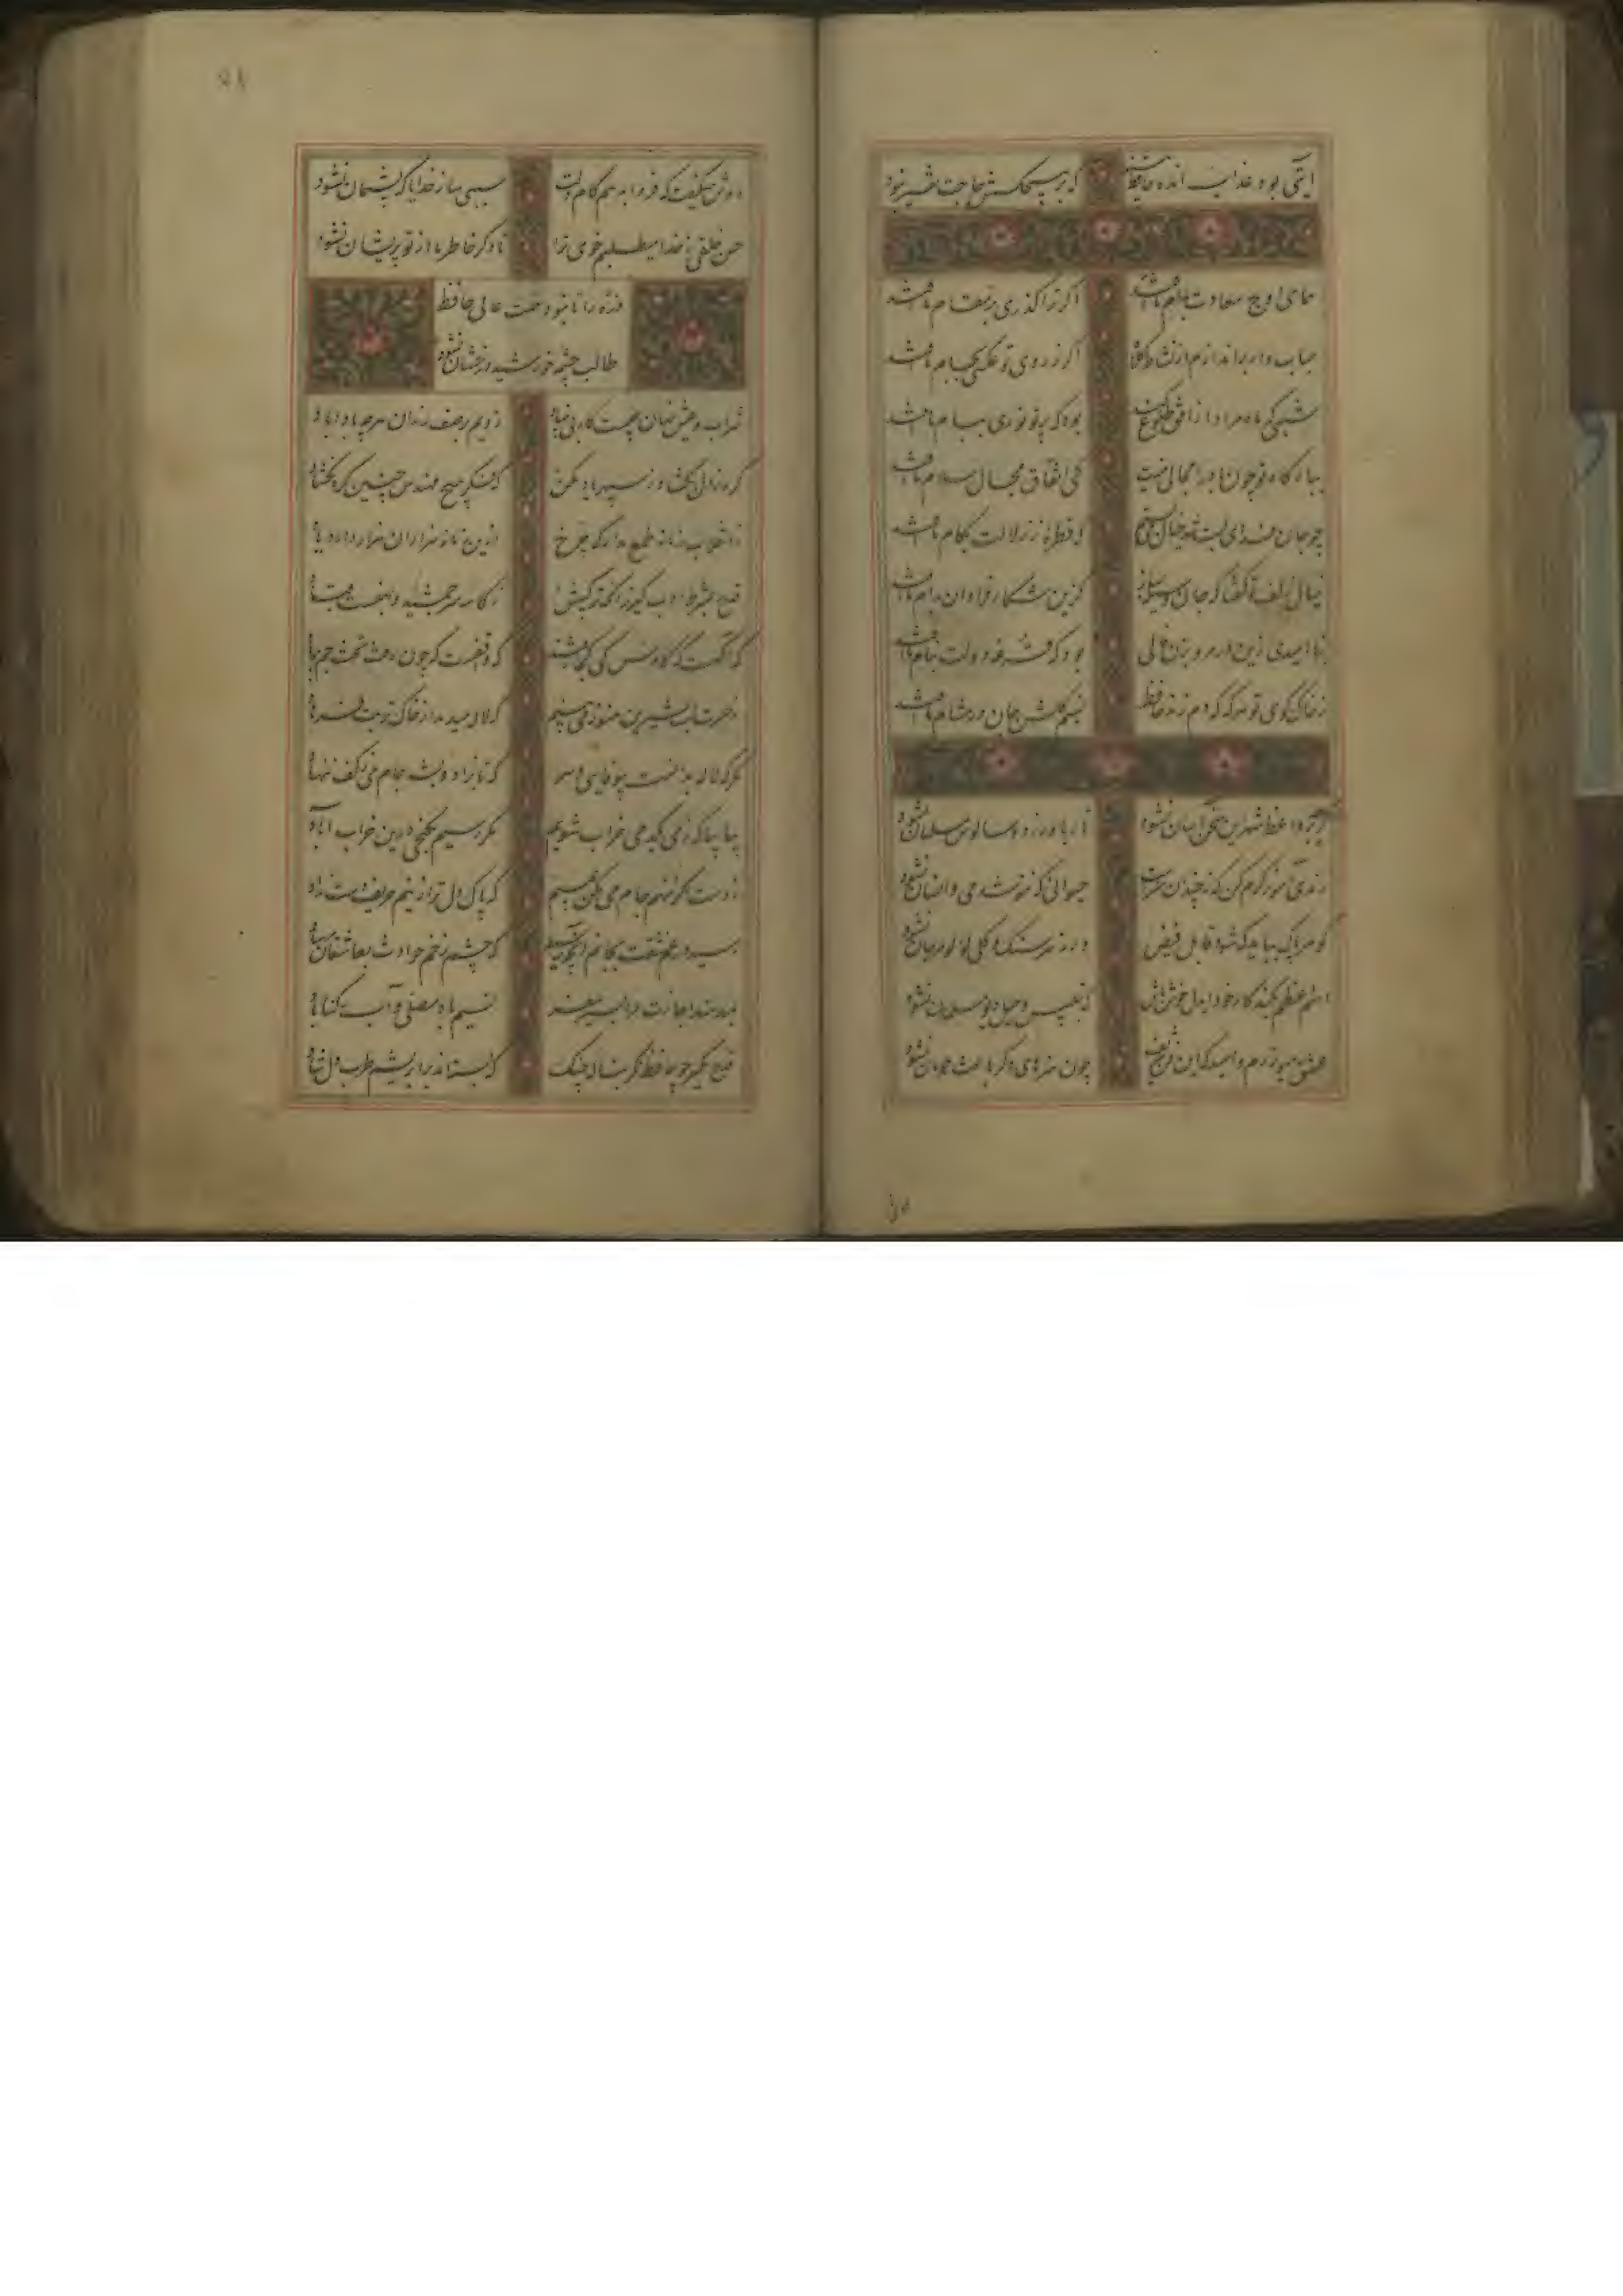 آیتی بود عذاب انده حافظ که بر هیچکسش حاجت تفسیر نبود
همای اوج سعادت بدام ما افتد اگر ترا گذری بر مقام ما افتد
حباب وار براندازم از نشاط کلاه اگر ز روی تو عکسی بجام ما افتد
شبی که ماه مراد از افق طلوع کند بود که پرتو نوری ببام ما افتد
ببارگاه تو چون باد را مجال نیست کی اتفاق مجال سلام ما افتد
چو جان فدای لبت شد خیال می بستم که قطره ز زلالت بکام ما افتد
خیال زلف تو گفتا که جان وسیله مساز کزین شکار فراوان بدام ما افتد
بنا امیدی ازین در مرو بزن فالی بود که قرعه دولت بنام ما افتد
ز خاک کوی تو هر که که دم زند حافظ نسیم گلشن جان در مشام ما افتد
گرچه بر واعظ شهر این سخن آسان نشود تا ریا ورزد و سالوس مسلمان نشود
رندی آموز و کرم کن که نه چندان هنرست حیوانی که ننوشد می و انسان نشود
گوهر پاک بباید که شود قابل فیض ورنه هر سنک و گلی لولو و مرجان نشود
اسم اعظم بکند کار خود ای دل خوش باش که بتلبیس و حیل دیو سلیمان نشود
عشق میورزم و امید که این فن شریف چون هنرهای دگر باعث حرمان نشود
دی
دوش میگفت که فردا بدهم کام دلت سببی ساز خدایا که پشیمان نشود
حسن خلقی ز خدا میطلبم خوی ترا تا دگر خاطر ما از تو پریشان نشود
ذره را تا نبود همت عالی حافظ
طالب چشمه خورشید درخشان نشود
شراب و عیش نهان چیست کار بی بنیاد زدیم بر صف رندان هر چه بادا باد
گره ز دل بکشا وز سپهر یاد مکن که فکر هیچ مهندس چنین گره نکشاد
ز انقلاب زمانه طمع مدار که چرخ ازین فسانه هزاران هزار دارد یاد
قدح بشرط ادب گیر زانکه ترکیبش ز کاسه سر جمشید و بهمنست و قباد
که آگهست که کاوس و کی کجا رفتند که واقفست که چون رفت تخت جم بر باد
ز حسرت لب شیرین هنوز می بینم که لاله میدمد از خاک تربت فرهاد
مگر که لاله بدانست بیوفایی دهر که تا بزاد و بشد جام می ز کف ننهاد
بیا بیا که زمانی ز می خراب شویم مگر رسیم بگنجی درین خراب آباد
ز دست اگر ننهم جام می مکن عیبم که پاک دل تر ازینم حریف دست نداد
رسید در غم عشقت بجانم آنچه رسید که چشم زخم حوادث بعاشقان مرساد
نمیدهند اجازت مرا بسیر سفر نسیم باد مصلی و آب رکناباد
قدح مگیر چو حافظ مگر بناله چنگ که بسته اند بر ابریشم طرب دل شاد